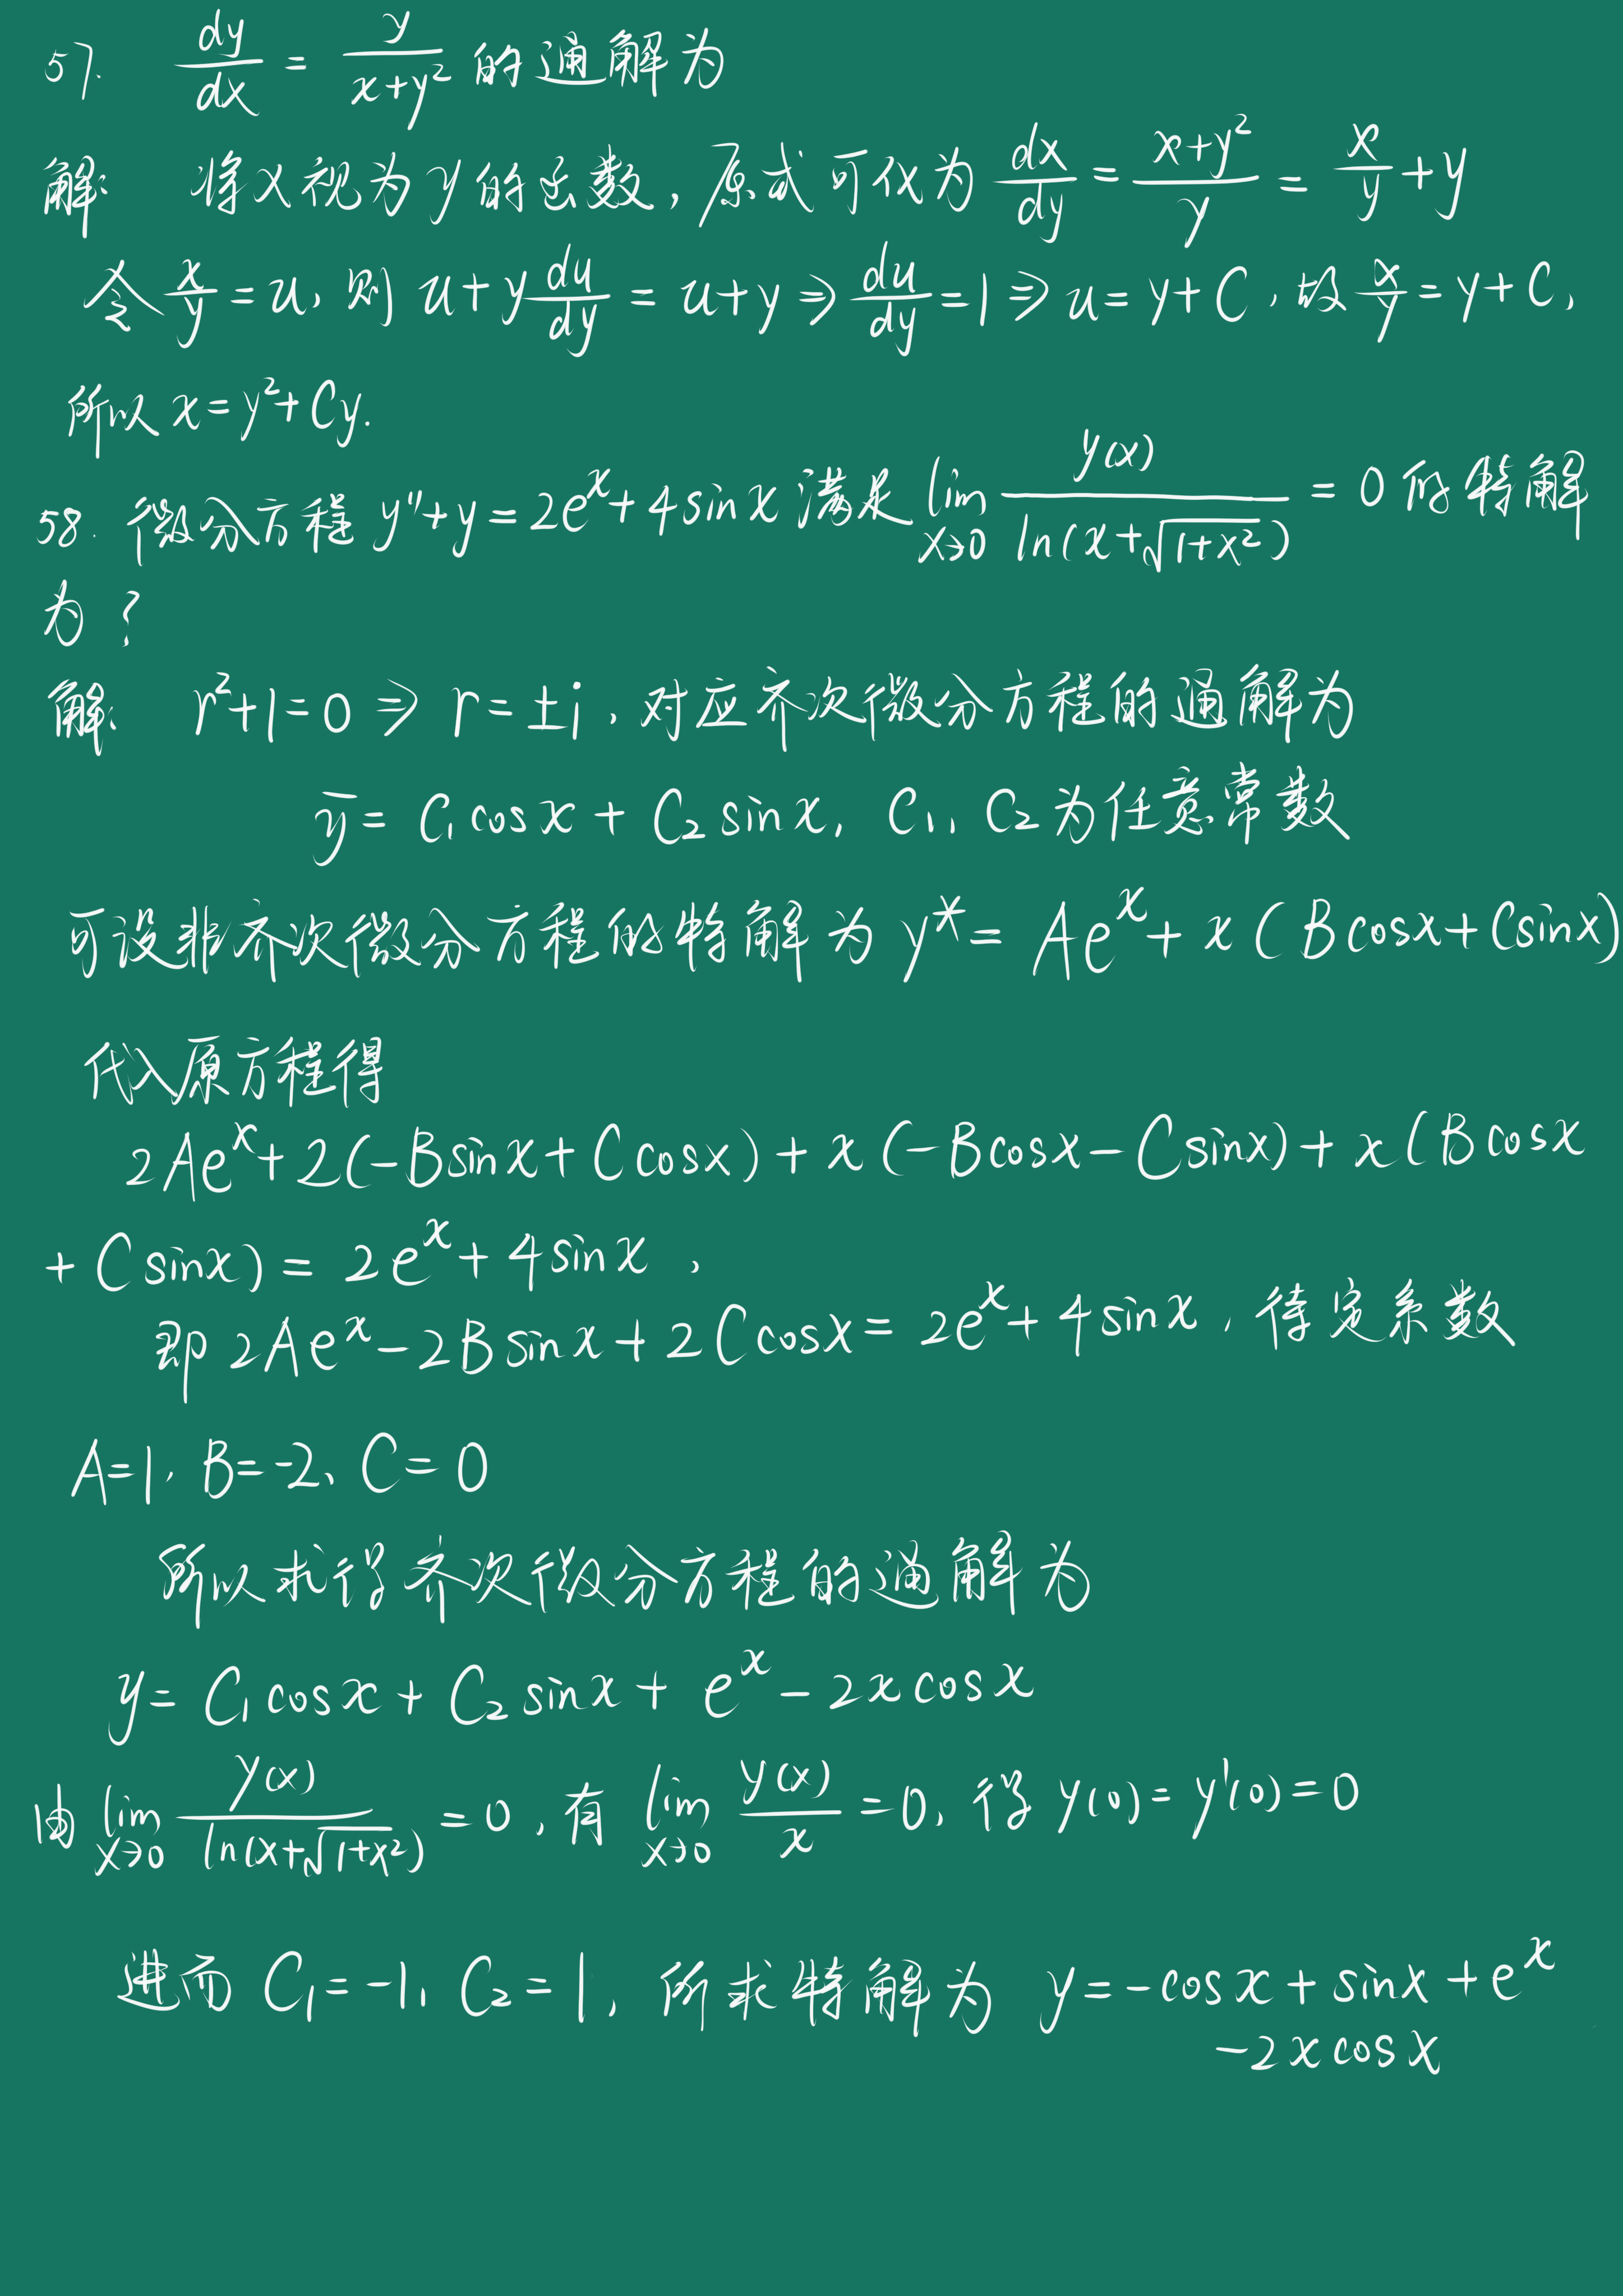 57. dy/dx = y/(x+y²) 的通解为
解: 将x视为y的函数, 原式可化为 dx/dy = (x+y²)/y = x/y + y
令 x/y = u, 则 u + y du/dy = u+y ⇒ du/dy = 1 ⇒ u = y+C, 故 x/y = y+C,
所以 x = y² + Cy.
58. 微分方程 y''+y = 2eˣ + 4sinx 满足 lim_{x→0} y(x)/ln(x+√(1+x²)) = 0 的特解
为?
解: r²+1=0 ⇒ r = ±i, 对应齐次微分方程的通解为
ȳ = C₁cosx + C₂sinx, C₁, C₂为任意常数
可设非齐次微分方程的特解为 y* = Aeˣ + x(Bcosx+Csinx)
代入原方程得
2Aeˣ + 2(-Bsinx + Ccosx) + x(-Bcosx - Csinx) + x(Bcosx
+ Csinx) = 2eˣ + 4sinx,
即 2Aeˣ - 2Bsinx + 2Ccosx = 2eˣ + 4sinx, 待定系数
A=1, B=-2, C=0
所以求得齐次微分方程的通解为
y = C₁cosx + C₂sinx + eˣ - 2xcosx
由 lim_{x→0} y(x)/ln(x+√(1+x²)) = 0, 有 lim_{x→0} y(x)/x = 0, 得 y(0) = y'(0) = 0
进而 C₁=-1, C₂=1, 所求特解为 y = -cosx + sinx + eˣ
-2xcosx